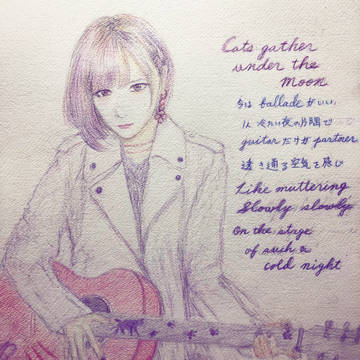 Cats gather
under the
Moon
今は balladeがいい
1人 冷たい夜の片隅で
guitarだけが partner
透き通る空気を感じ
Like muttering
Slowly slowly
On the stage
of such a
cold night